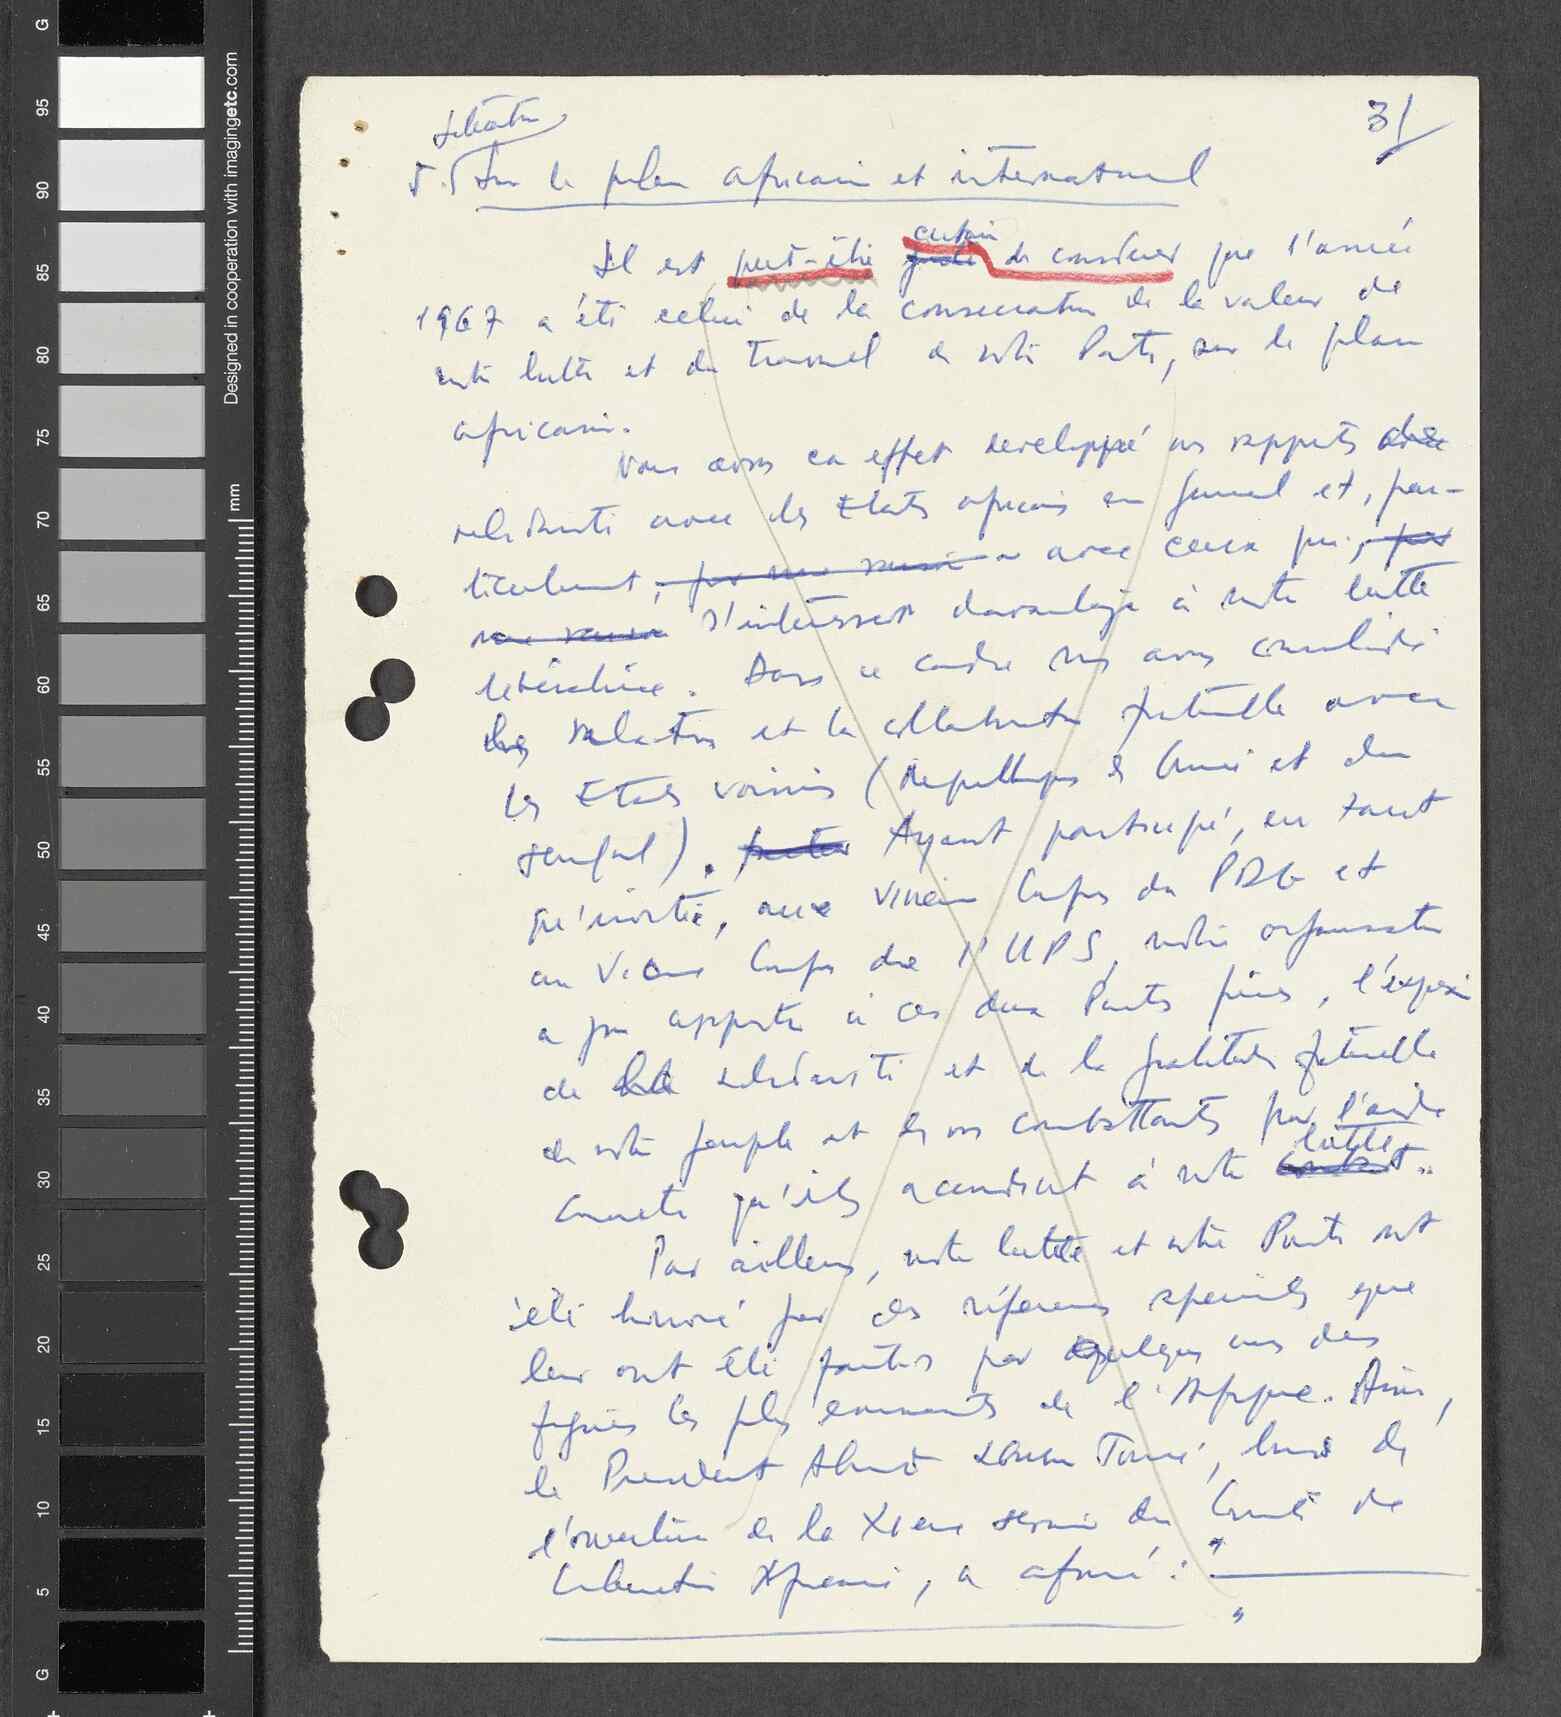 31
Situation
5. Sur le plan africain et international
Il est peut-être certain de considérer que l'année
1967 a été celui de la consecration de la valeur de
notre lutte et du travail de notre Parti, sur le plan
africain.
Nous avons en effet developpé nos rapports de
solidarité avec les Etats africains en general et, par-
ticulierement, avec ceux qui,
s'intéressent davantage à notre lutte
libératrice. Dans ce cadre nous avons consolidé
les relations et la collaboration fraternelle avec
les Etats voisins (Republique de Guinée et du
Senegal). Ayant participé, en tant
qu'invité, aux VIIIeme Congrès du PDG et
au VIeme Congrès de l'UPS, notre organisation
a pu apporter à ces deux Partis frères, l'expression
de solidarité et de la gratitude fraternelle
de notre peuple et de nos combattants par l'aide
concrete qu'ils accordent à notre lutte.
Par ailleurs, notre lutte et notre Parti ont
été honoré par des réferences speciales que
leur ont été faites par quelques uns des
figures les plus eminentes de l'Afrique. Ainsi,
le President Ahmed Sekou Touré, lors de
l'ouverture de la XIeme session du Comité de
Liberation Africaine, a afirmé : "
"
G
95
90
85
80
75
70
65
60
55
50
45
40
35
30
25
20
15
10
5
G
mm
Designed in cooperation with imagingetc.com